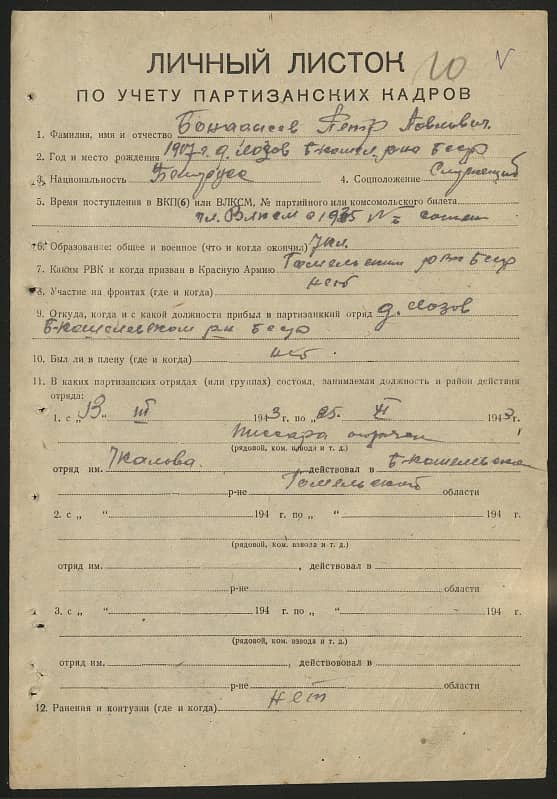 ЛИЧНЫЙ ЛИСТОК
ПО УЧЕТУ ПАРТИЗАНСКИХ КАДРОВ
1. Фамилия, имя и отчество Петр Павлович.
2. Год и место рождения 1907 г. д. Лозов Б-кошел. р-на БССР
3. Национальность Белорус 4. Соцположение Служащий
5. Время поступления в ВКП(б) или ВЛКСМ, № партийного или комсомольского билета
чл. ВЛКСМ с 1925 №
6. Образование: общее и военное (что и когда окончил) 7 кл.
7. Каким РВК и когда призван в Красную Армию Гомельским БССР
8. Участие на фронтах (где и когда) нет
9. Откуда, когда и с какой должности прибыл в партизанский отряд д. Лозов
Б-кошелевском р-н БССР
10. Был ли в плену (где и когда) нет
11. В каких партизанских отрядах (или группах) состоял, занимаемая должность и район действия
отряда:
1. с „ 13 “ III 1943 г. по „ 25. XI 1943 г.
(рядовой, ком. взвода и т. д.)
отряд им. Чкалова. действовал в Б-кошелевском
р-не Гомельской области
2. с „ “ 194 г. по „ “ 194 г.
(рядовой, ком. взвода и т. д.)
отряд им. , действовал в
р-не области
3. с „ “ 194 г. по „ “ 194 г.
(рядовой, ком. взвода и т. д.)
отряд им. , действововал в
р-не области
12. Ранения и контузии (где и когда) нет